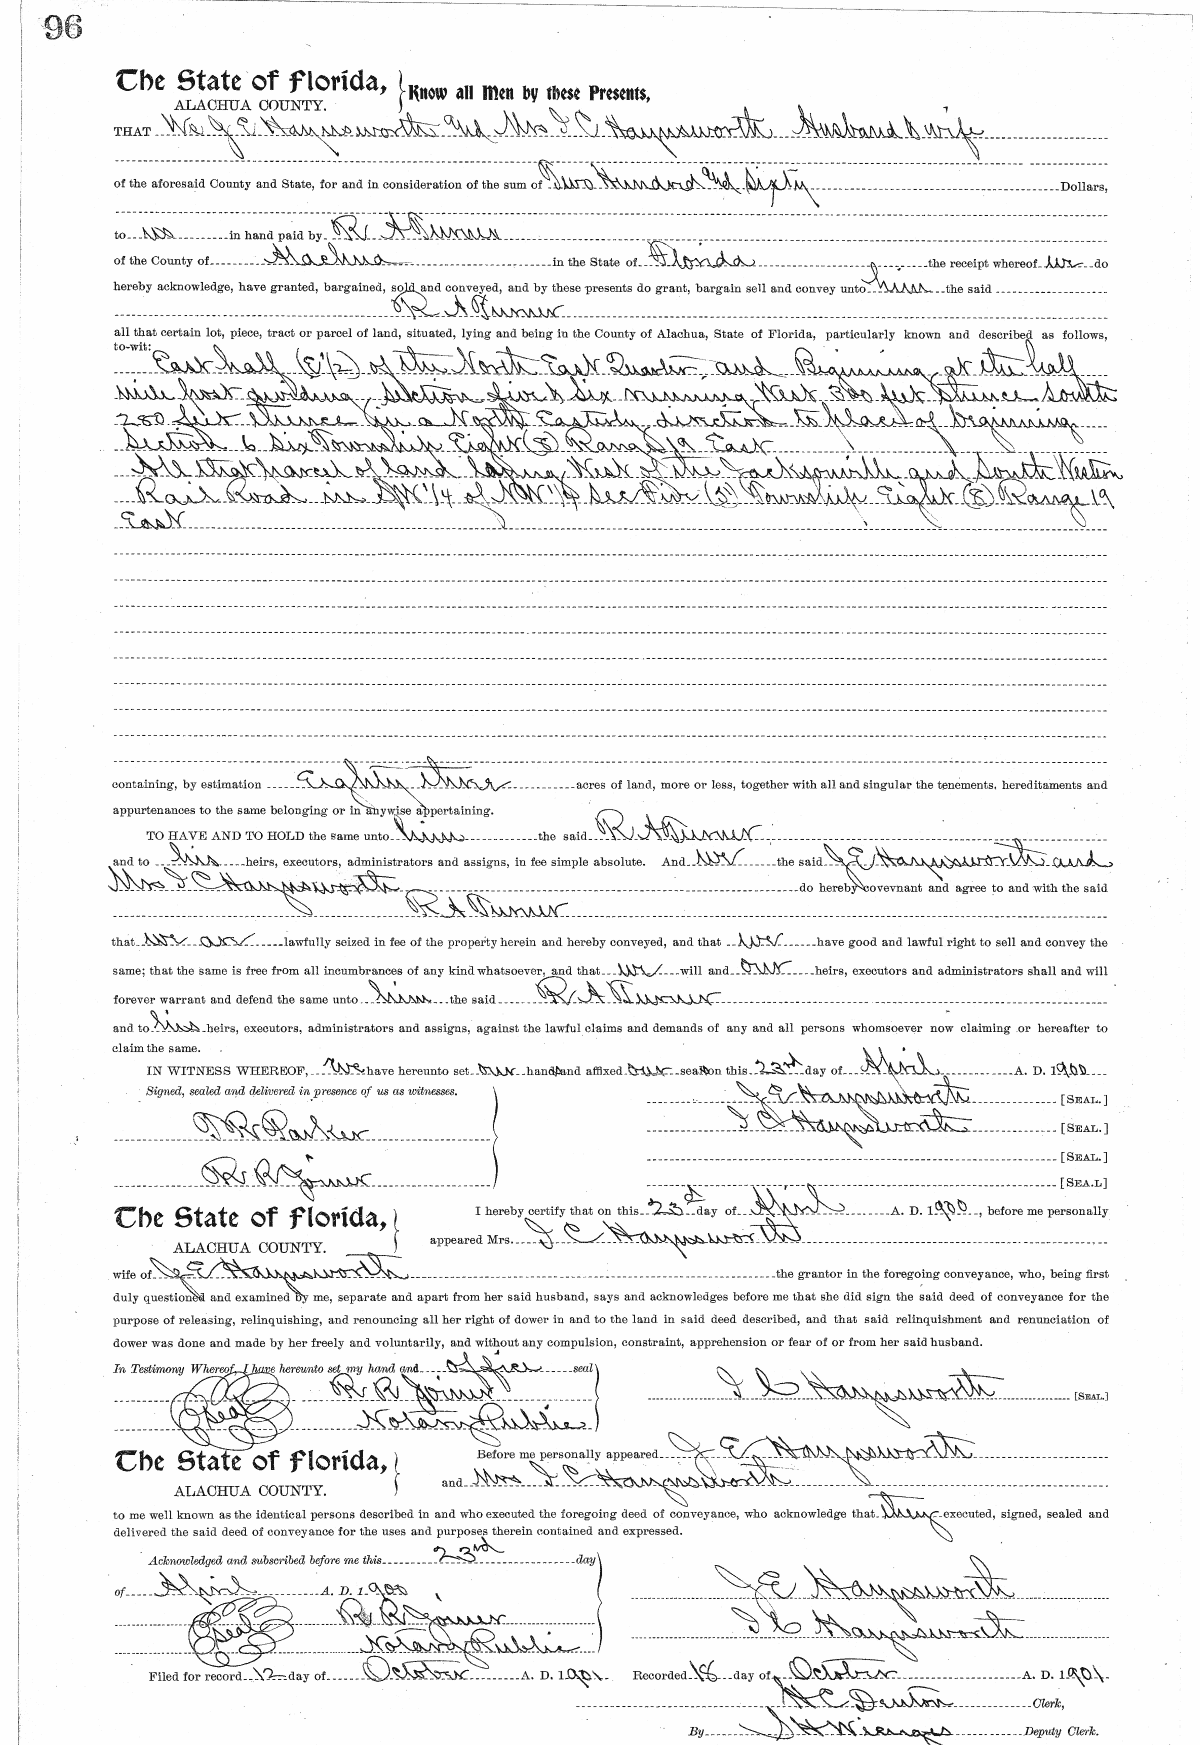 96
The State of Florida,
ALACHUA COUNTY.
Know all Men by these Presents,
THAT We J E Haynsworth and Mrs I C Haynsworth Husband & wife
of the aforesaid County and State, for and in consideration of the sum of Two Hundred and Sixty Dollars,
to us in hand paid by R A Turner
of the County of Alachua in the State of Florida the receipt whereof we do
hereby acknowledge, have granted, bargained, sold and conveyed, and by these presents do grant, bargain sell and convey unto him the said
R A Turner
all that certain lot, piece, tract or parcel of land, situated, lying and being in the County of Alachua, State of Florida, particularly known and described as follows,
to-wit:
East half (E 1/2) of the North East Quarter, and Beginning at the half
mile post dividing section five & six running West 380 feet thence south
280 feet thence in a North Easterly direction to place of beginning
Section 6 Six Township Eight (8) Range 19 East
All that parcel of land laying West of the Jacksonville and South Western
Rail Road in SW 1/4 of NW 1/4 Sec Five (5) Township Eight (8) Range 19
East
containing, by estimation Eighty three acres of land, more or less, together with all and singular the tenements, hereditaments and
appurtenances to the same belonging or in anywise appertaining.
TO HAVE AND TO HOLD the same unto him the said R A Turner
and to his heirs, executors, administrators and assigns, in fee simple absolute. And we the said J E Haynsworth and
Mrs I C Haynsworth do hereby covevnant and agree to and with the said
R A Turner
that we are lawfully seized in fee of the property herein and hereby conveyed, and that we have good and lawful right to sell and convey the
same; that the same is free from all incumbrances of any kind whatsoever, and that we will and our heirs, executors and administrators shall and will
forever warrant and defend the same unto him the said R A Turner
and to his heirs, executors, administrators and assigns, against the lawful claims and demands of any and all persons whomsoever now claiming or hereafter to
claim the same.
IN WITNESS WHEREOF, We have hereunto set our hands and affixed our seals on this 23rd day of April A. D. 1900
Signed, sealed and delivered in presence of us as witnesses.
J E Haynsworth [SEAL.]
T R Parker
I C Haynsworth [SEAL.]
[SEAL.]
R R Joiner
[SEA.L]
The State of Florida,
ALACHUA COUNTY.
I hereby certify that on this 23d day of April A. D. 1900, before me personally
appeared Mrs. I C Haynsworth
wife of J E Haynsworth the grantor in the foregoing conveyance, who, being first
duly questioned and examined by me, separate and apart from her said husband, says and acknowledges before me that she did sign the said deed of conveyance for the
purpose of releasing, relinquishing, and renouncing all her right of dower in and to the land in said deed described, and that said relinquishment and renunciation of
dower was done and made by her freely and voluntarily, and without any compulsion, constraint, apprehension or fear of or from her said husband.
In Testimony Whereof, I have hereunto set my hand and office seal
Seal R R Joiner
Notary Public
I C Haynsworth [SEAL.]
The State of Florida,
ALACHUA COUNTY.
Before me personally appeared J E Haynsworth
and Mrs I C Haynsworth
to me well known as the identical persons described in and who executed the foregoing deed of conveyance, who acknowledge that they executed, signed, sealed and
delivered the said deed of conveyance for the uses and purposes therein contained and expressed.
Acknowledged and subscribed before me this 23rd day
of April A. D. 1900
J E Haynsworth
Seal R R Joiner
I C Haynsworth
Notary Public
Filed for record 12 day of October A. D. 1901 Recorded 18 day of October A. D. 1901
H C Denton Clerk,
By S H Wienges Deputy Clerk.